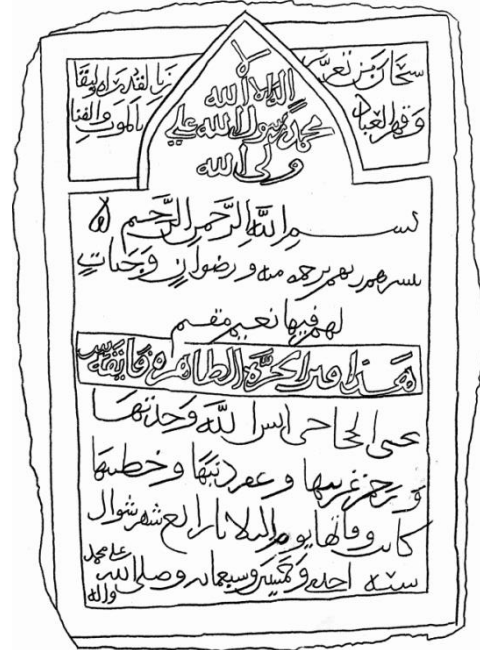 سبحان من تعزز
بالقدرة والبقا
وقهر العباد
بالموت والفنا
لا
اله الا الله
محمد رسول الله علي
ولي الله
بسم الله الرَّحمن الرَّحيم
يبشرهم ربهم برحمه منه ورضوانٍ وجناتٍ
لهم فيها نعيم مقيم
هذا قبر الحرَّة الطاهره
الحاجي انس الله وحدتها
ورحم غربتها وغفر ذنبها وخطيتها
كانت وفاتها يوم الثلاثا رابع شهر شوال
سنه احدى وخمسين وسبعمائه وصلى الله
على محمد
واله